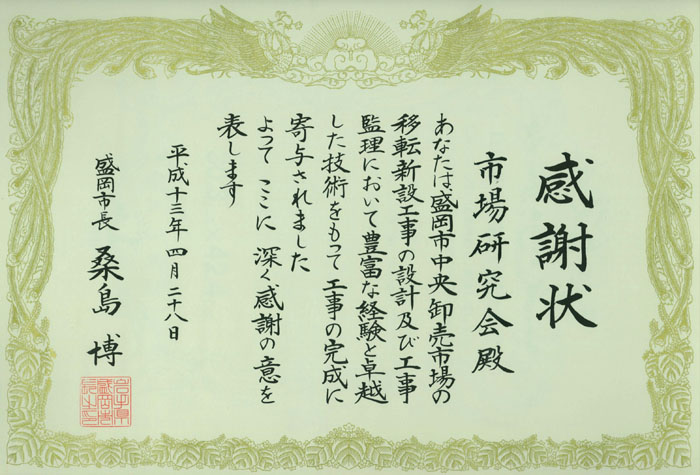 感謝状
市場研究会殿
あなたは盛岡市中央卸売市場の
移転新設工事の設計及び工事
監理において豊富な経験と卓越
した技術をもって工事の完成に
寄与されました
よってここに深く感謝の意を
表します
平成十三年四月二十八日
盛岡市長 桑島 博